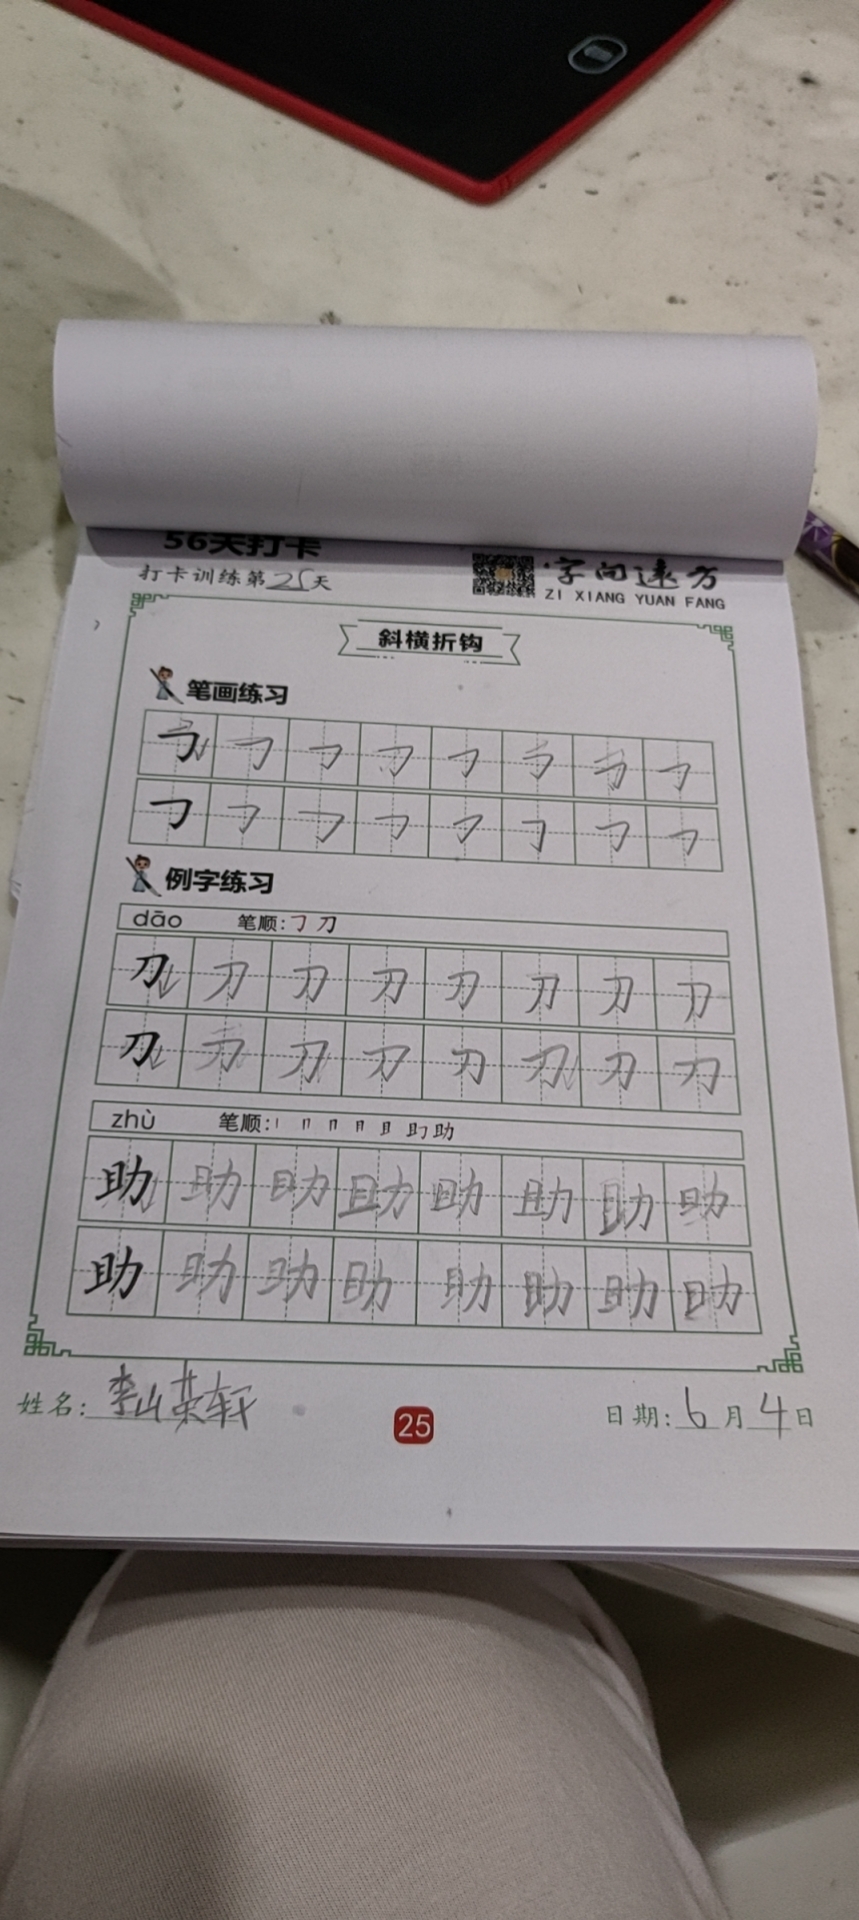 56天打卡
打卡训练第25天
字向远方
ZI XIANG YUAN FANG
斜横折钩
笔画练习
例字练习
dāo 笔顺: 𠃌 刀
刀 刀 刀 刀 刀 刀 刀 刀
刀 刀 刀 刀 刀 刀 刀 刀
zhù 笔顺: 助
助 助 助 助 助 助 助 助
助 助 助 助 助 助 助 助
姓名: 英轩
25
日期: 6月4日